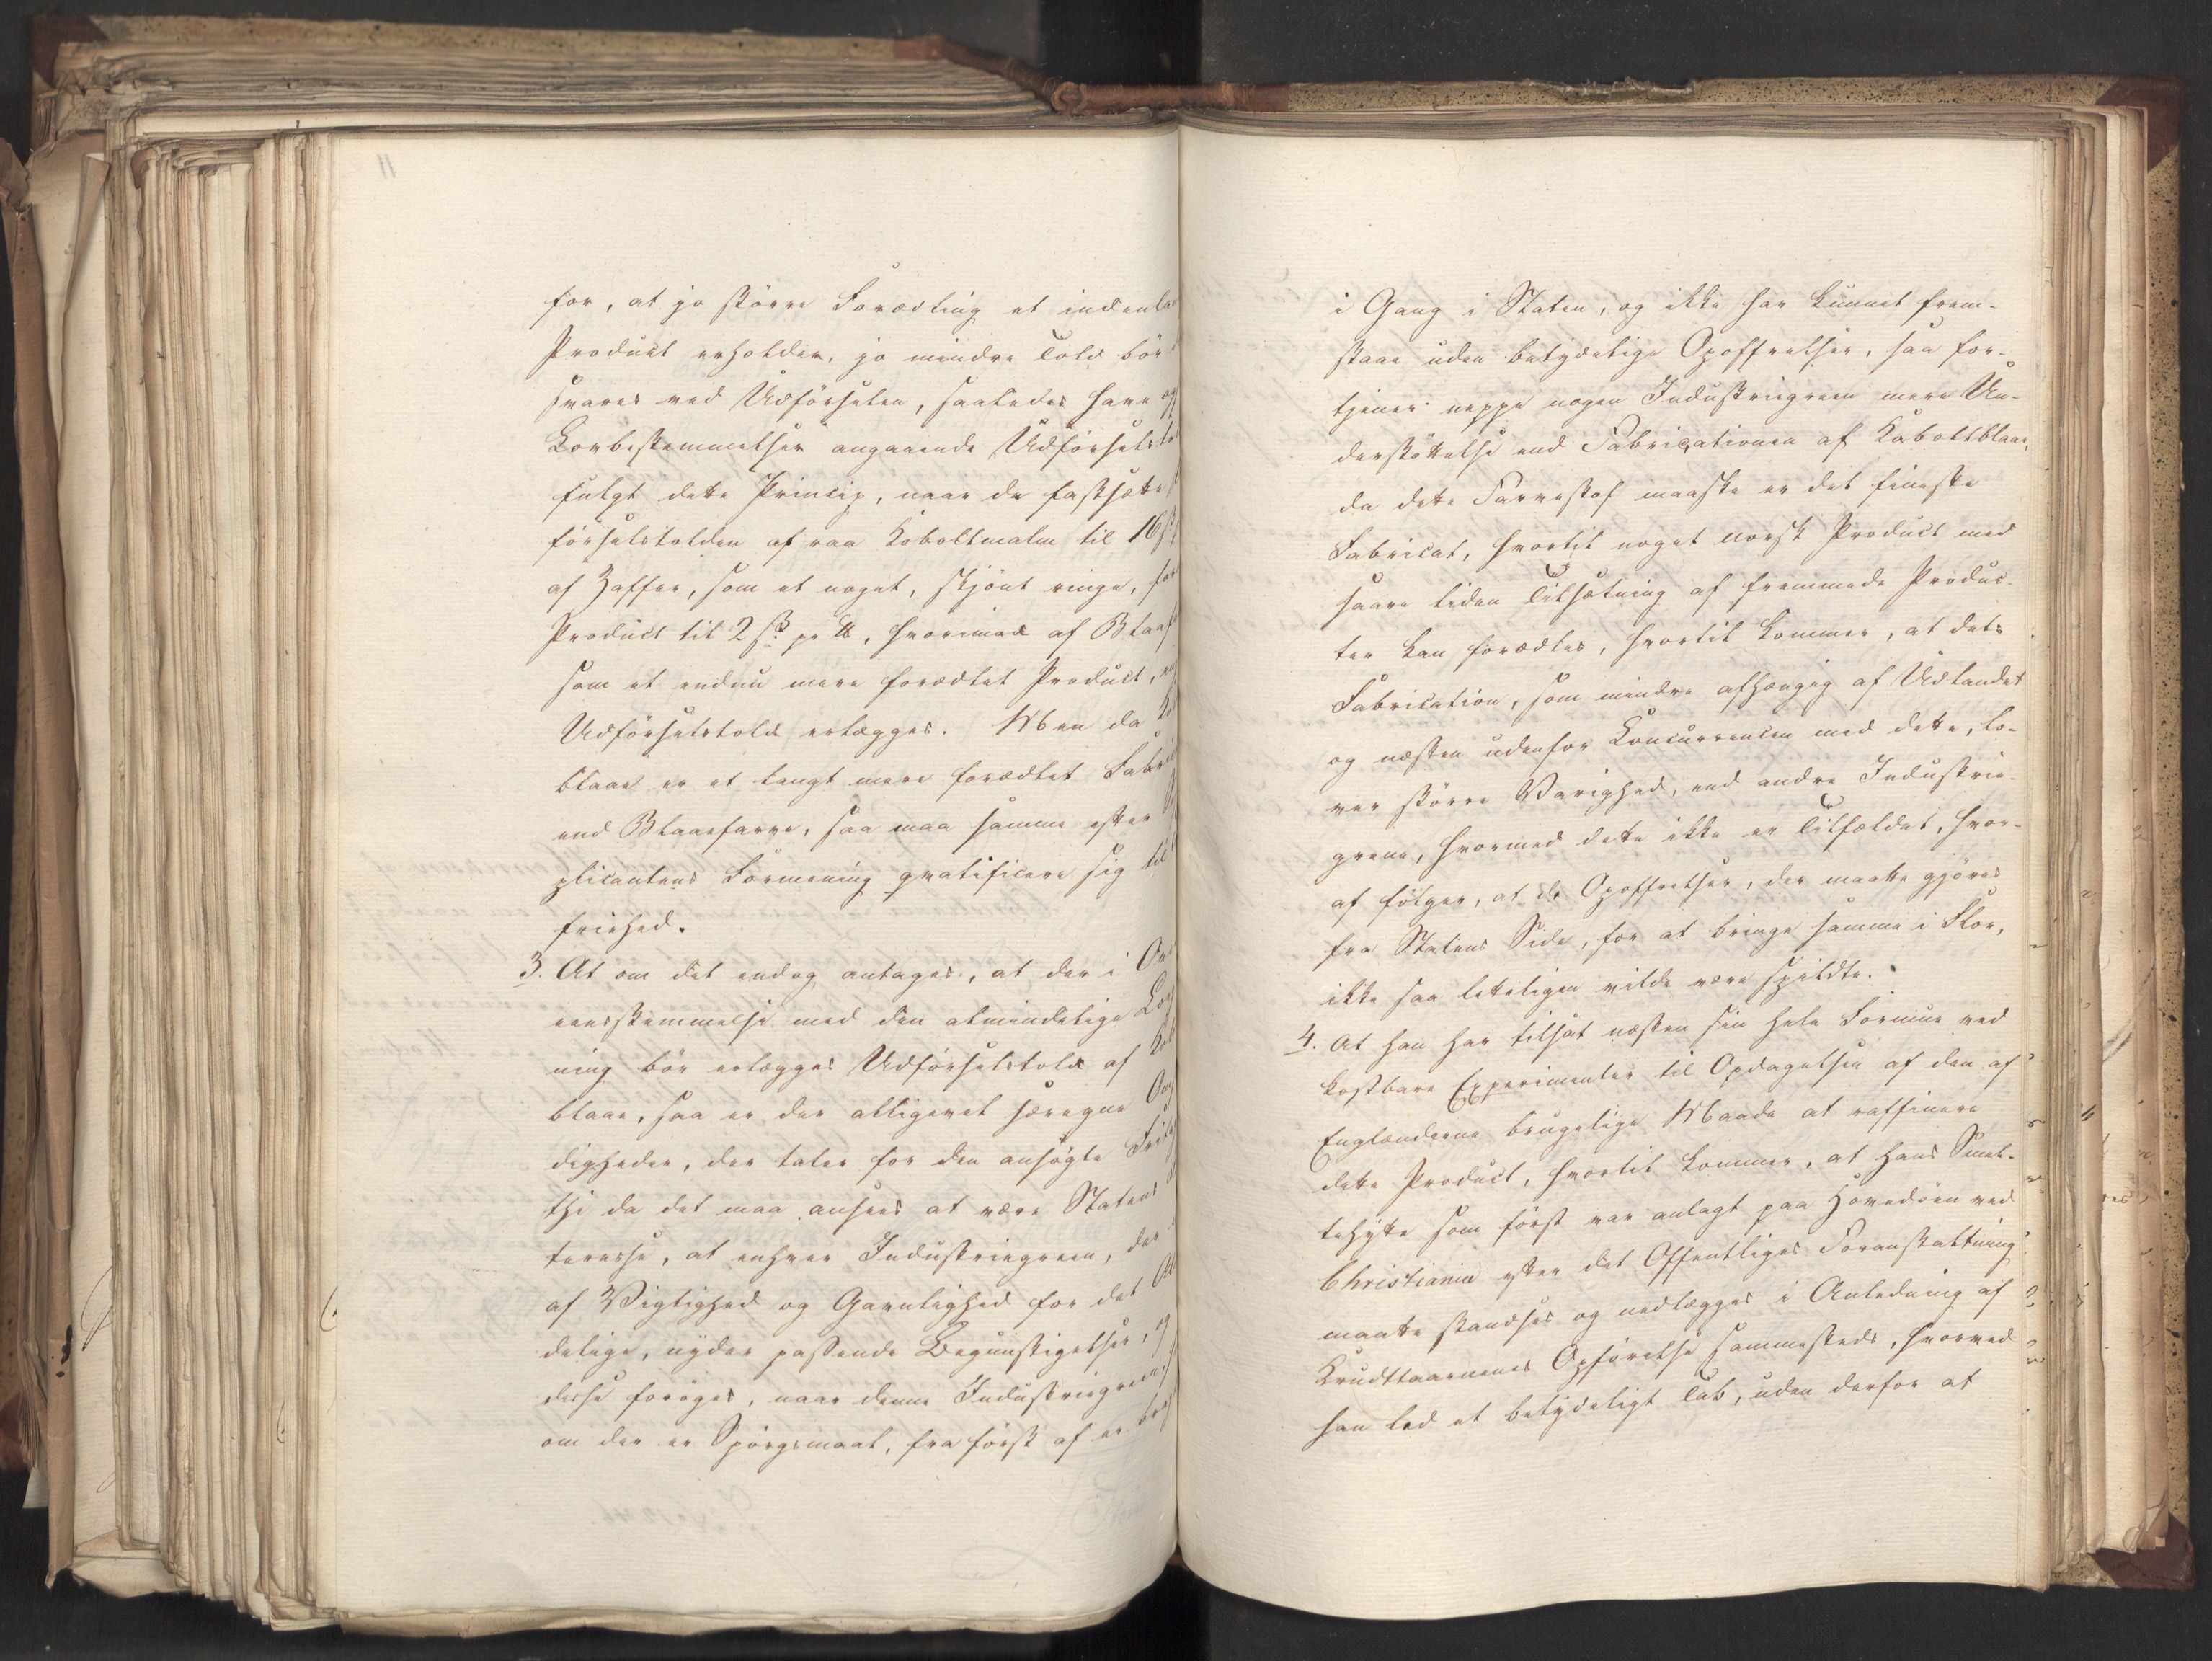 for, at jo större Forædling et indenla
Product erholder, jo mindre Told bör
svares ved Udförselen, saaledes have og
Lovbestemmelser angaaende Udförselsto
fulgt dette Princip, naar de fastsætte
förselstolden af raa Koboltmalm til 16 ß
af Zaffer, som et noget, skjönt ringe, for
Product til 2 ß pr ℔, hvorimod af Blaaf
som et endnu mere forædlet Product,
Udförselstold erlægges. Men da Ko
blaae er et langt mere forædlet Fabri
end Blaaefarve, saa maa samme efter
plicantens Formening qvalificere sig til
friehed.
3. At om det endog antages, at der i Ov
eensstemmelse med den almindelige Lov
ning bör erlægges Udförselstold af Kob
blaae, saa er der alligevel særegne Om
digheder, der taler for den ansögte Frita
thi da det maa ansees at være Statens
teresse, at enhver Industriegreen, der
af Vigtighed og Gavnlighed for det Al
delige, nyder passende Begunstigelser, og
disse foröges, naar denne Industriegreen,
om der er Spörgsmaal, fra först af er brag
i Gang i Staten, og ikke har kunnet frem-
staae uden betydelige Opoffrelser, saa for-
tjener neppe nogen Industriegreen mere Un-
derstöttelse end Fabricationen af Koboltblaae,
da dette Farvestof maaske er det fineste
Fabricat, hvortil noget norsk Product med
saare liden Tilsætning af fremmede Produc-
ter kan forædles, hvortil kommer, at dets
Fabrication, som mindre afhængig af Udlandet
og næsten udenfor Concurrencen med dette, lo-
ver större Varighed, end andre Industrie-
grene, hvormed dette ikke er Tilfældet, hvor-
af fölger, at de Opoffrelser, der maatte gjöres
fra Statens Side, for at bringe samme i Flor,
ikke saa letteligen vilde være spildte.
4. At han har tilsat næsten sin hele Formue ved
kostbare Experimenter til Opdagelsen af den af
Englænderne brugelige Maade at raffinere
dette Product, hvortil kommer, at hans Smel-
tehytte som först var anlagt paa Hovedöen ved
Christiania efter det Offentliges Foranstaltning
maatte standses og nedlægges i Anledning af
Krudttaarnenes Opförelse sammesteds, hvorved
han led et betydeligt Tab, uden derfor at